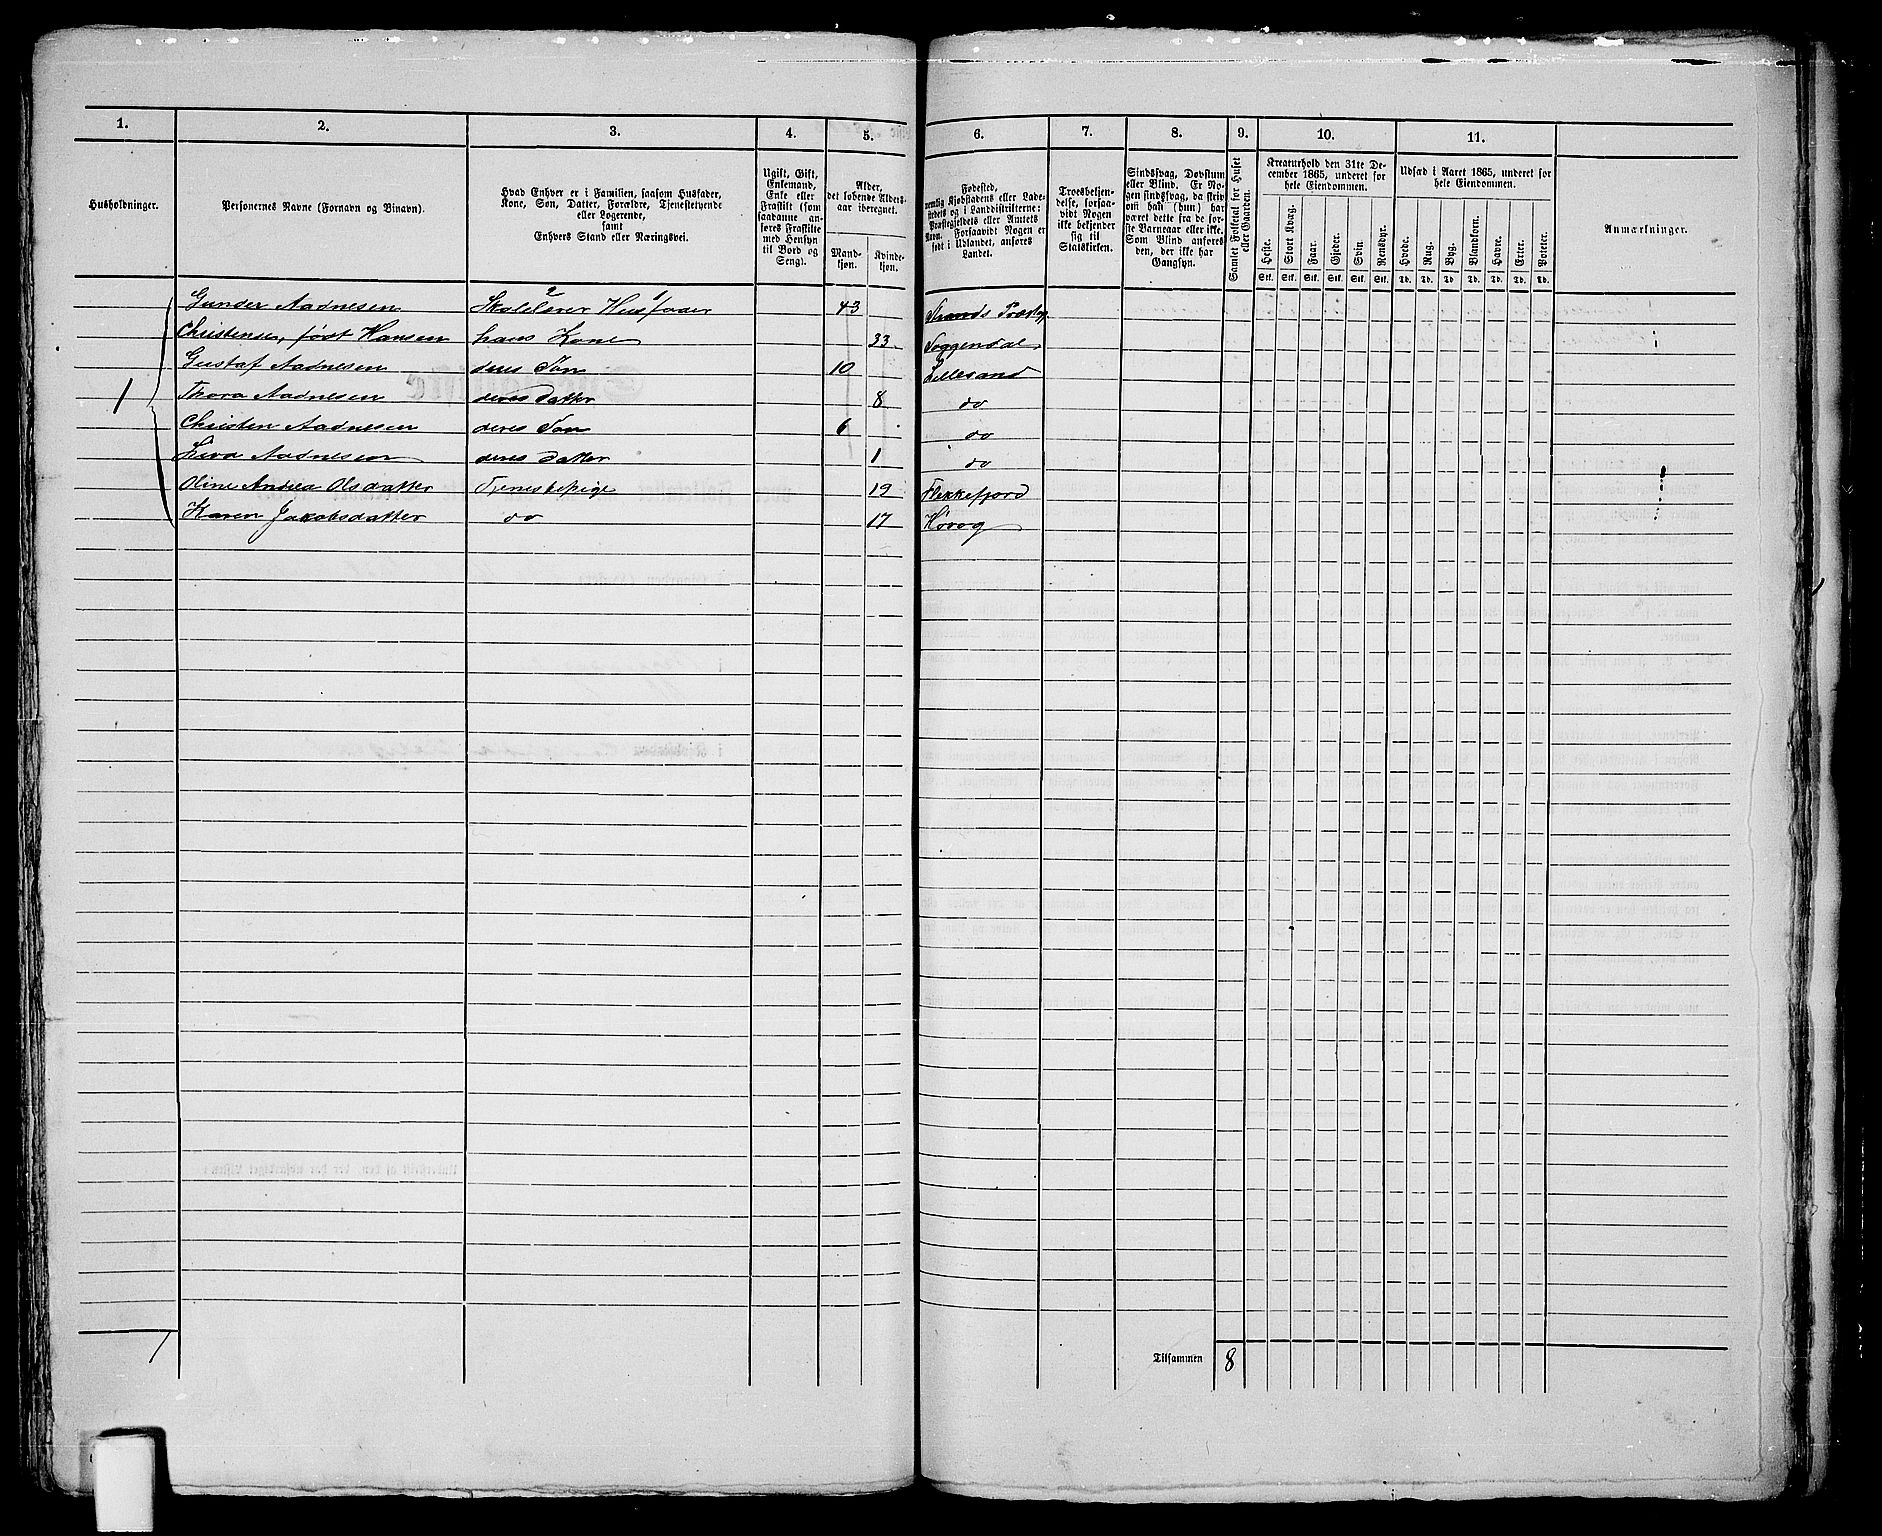 1. 2. 3. 4. 5. 6. 7. 8. 9. 10. 11.
Husholdninger.
Personernes Navne (Fornavn og Tilnavn).
Hvad Enhver er i Familien, saasom Husfader,
Kone, Søn, Datter, Forældre, Tjenestetyende
eller Logerende,
samt
Enhvers Stand eller Næringsvei.
Ugift, Gift,
Enkemand,
Enke eller
Fraskilt (som
saadanne an-
føres Fraskilte
med Hensyn
til Bord og
Seng).
Alder,
det løbende Alders-
aar iberegnet.
Mand-
kjøn.
Kvinde-
kjøn.
Fødested,
nemlig Kjøbstadens eller Lade-
stedets og i Landdistrikterne:
Præstegjeldets eller Amtets
Navn. Forsaavidt Nogen er
født i Udlandet, anføres
Landet.
Troesbekjen-
delse, forsaa-
vidt Nogen
ikke bekjender
sig til
Statskirken.
Sindssvag, Døvstum
eller Blind. Er No-
gen sindssvag, da skriv
om han (hun) har
været dette fra de før-
ste Barneaar eller ikke.
Som Blind anføres
den, der ikke har
Gangsyn.
Samlet Folketal for Huset
eller Gaarden.
Kreaturhold den 31te De-
cember 1865, underet for
hele Eiendommen.
Heste. Stort Kvæg. Faar. Gjeder. Svin. Rensdyr.
Stk. Stk. Stk. Stk. Stk. Stk.
Udsæd i Aaret 1865, underet for
hele Eiendommen.
Hvede. Rug. Byg. Blandkorn. Havre. Erter. Poteter.
Td. Td. Td. Td. Td. Td. Td.
Anmærkninger.
Gunder Aadnesen Skolelærer Husfader 43 Strands Præstg.
Christence, født Hansen hans Kone 33 Soggendal
Gustaf Aadnesen deres Søn 10 Lillesand
1 Thora Aadnesen deres Datter 8 do
Christen Aadnesen deres Søn 6 do
Aadnesen deres Datter 1 do
Oline Andrea Olsdatter Tjenestepige 19 Flekkefjord
Karen Jakobsdatter do 17 Høvog
1 Tilsammen 8